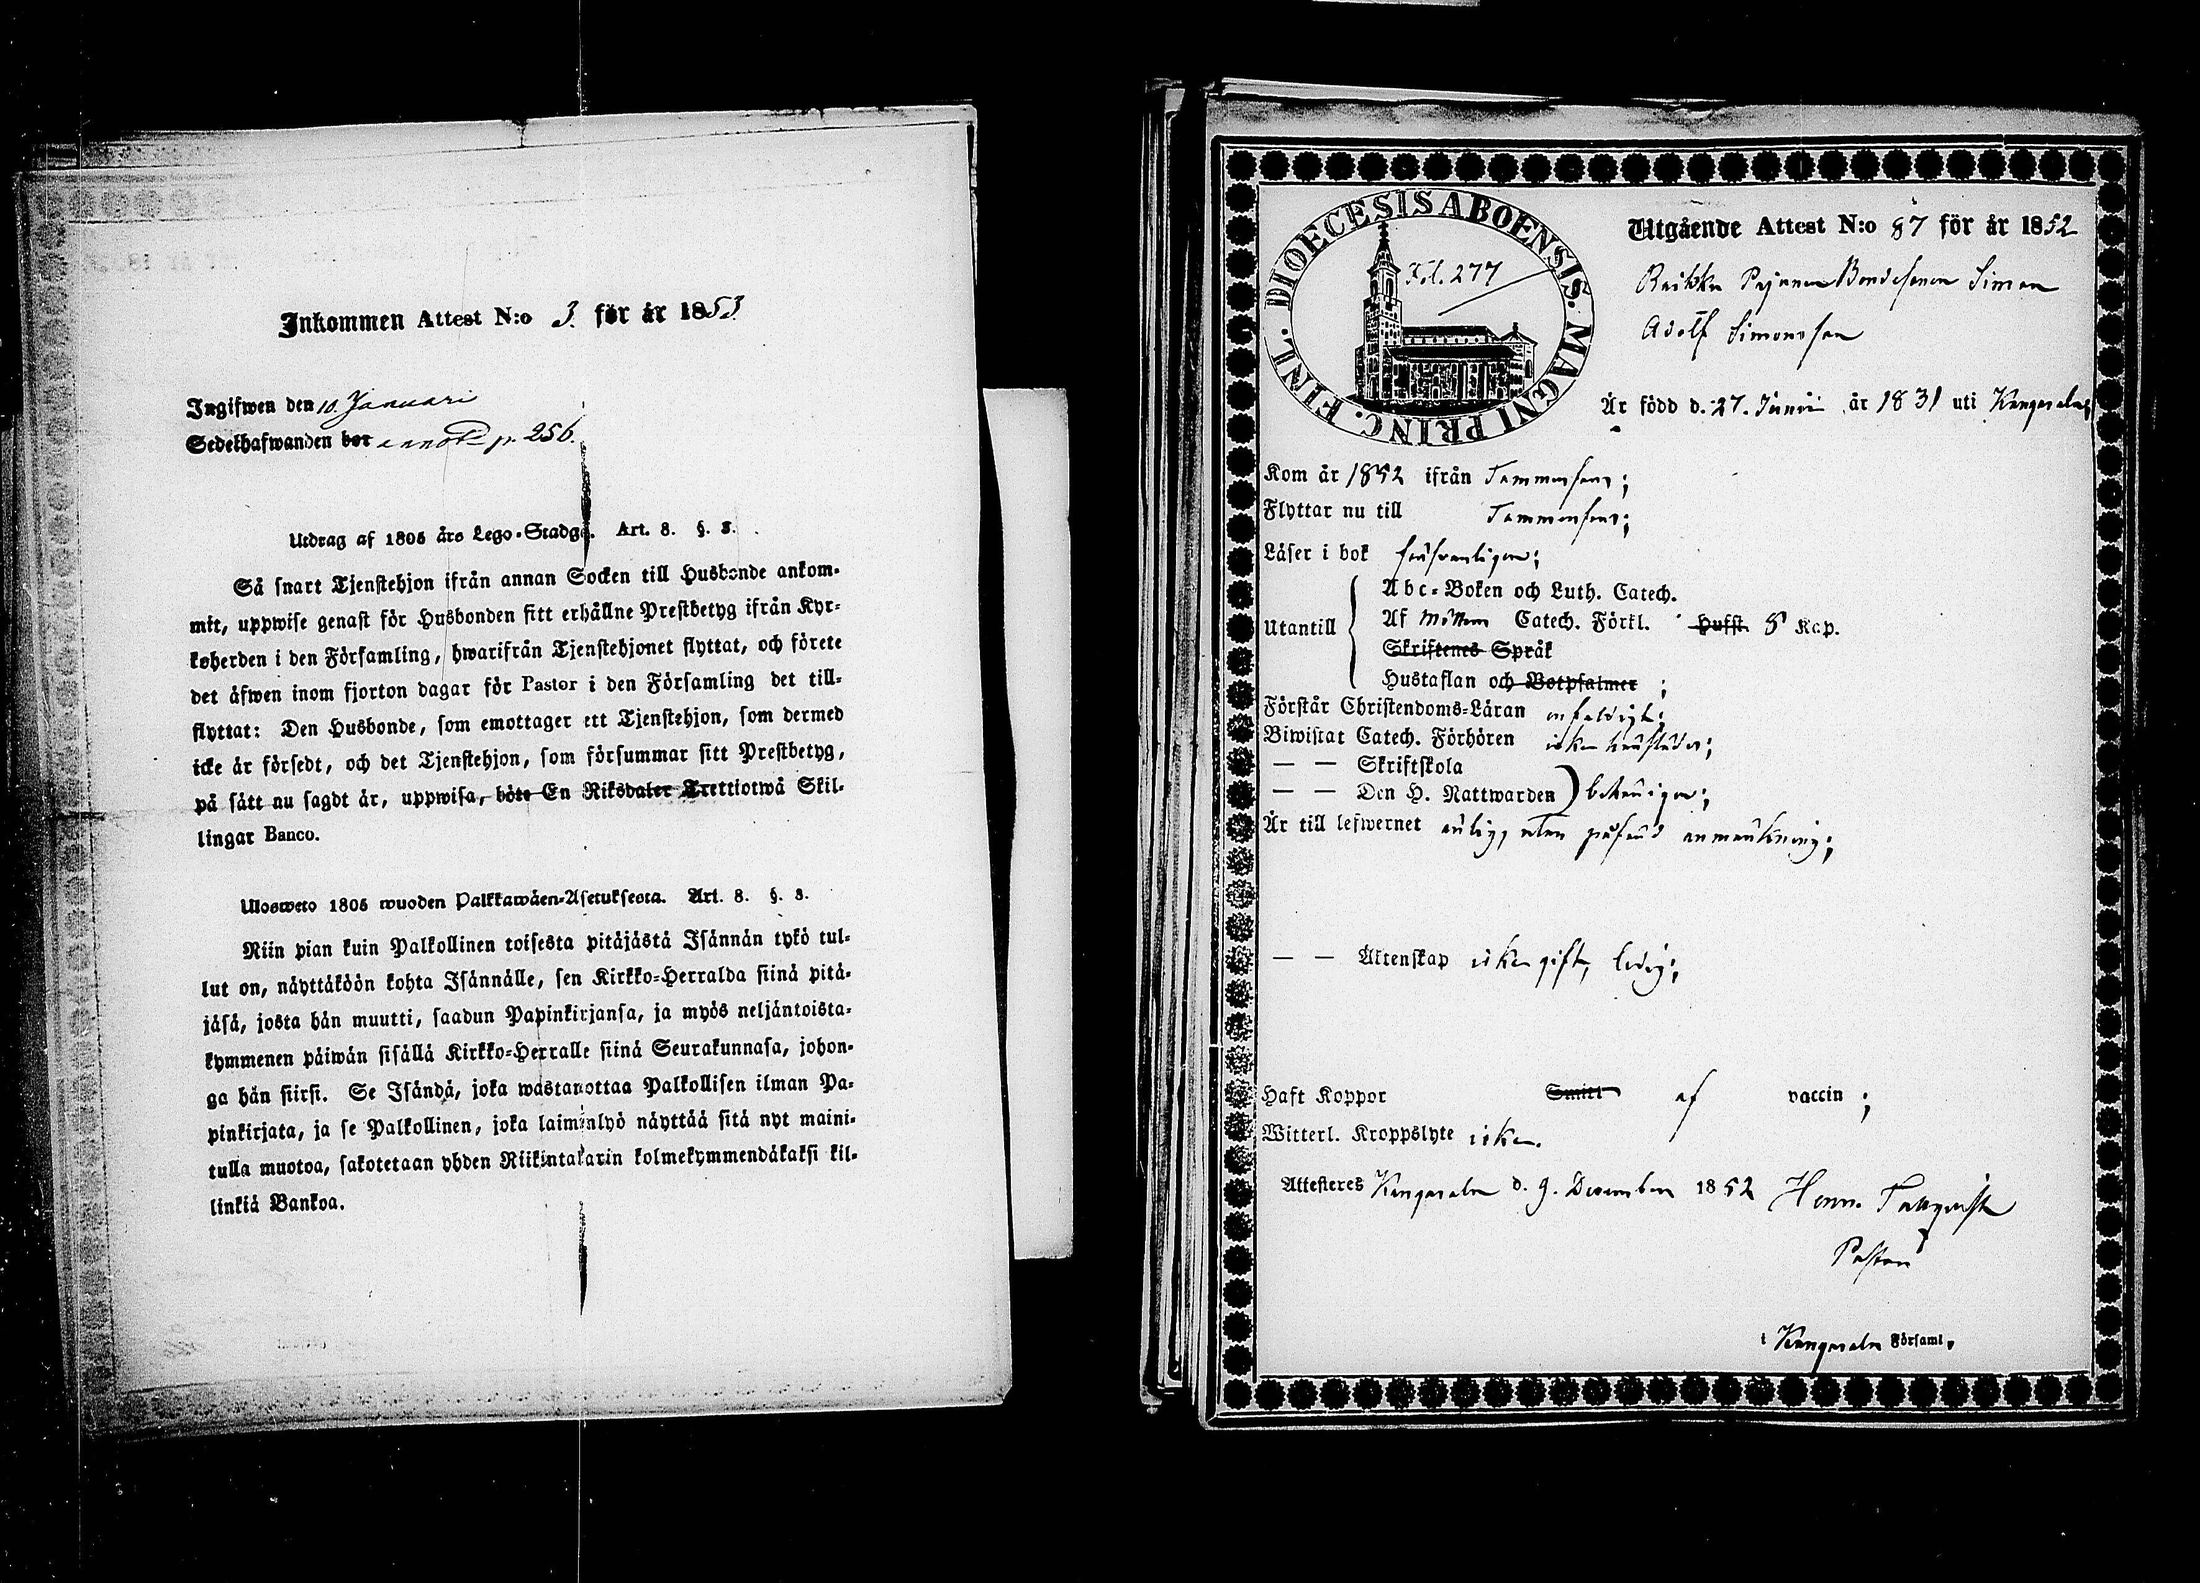 Inkommen Attest N:o 3. för år 1853
Ingifwen den 10. Januari
Sedelhafwanden bor annot p. 256.
Utdrag af 1805 års Lego-Stadga. Art. 8. §. 3.
Så snart Tjenstehjon ifrån annan Socken till Husbonde ankom-
mit, uppwise genast för Husbonden sitt erhållne Prestbetyg ifrån Kyr-
koherden i den Församling, hwarifrån Tjenstehjonet flyttat, och förete
det äfwen inom fjorton dagar för Pastor i den Församling det till-
flyttat: Den Husbonde, som emottager ett Tjenstehjon, som dermed
icke är försedt, och det Tjenstehjon, som försummar sitt Prestbetyg,
på sätt nu sagdt är, uppwisa, böte En Riksdaler Trettiotwå Skil-
lingar Banco.
Ulosweto 1805 wuoden Palkkawäen-Asetuksesta. Art. 8. §. 3.
Niin pian kuin Palkollinen toisesta pitäjästä Isännän tykö tul-
lut on, näyttäköön kohta Isännälle, sen Kirkko-Herralda siinä pitä-
jäsä, josta hän muutti, saadun Papinkirjansa, ja myös neljäntoista-
kymmenen päiwän sisällä Kirkko-Herralle siinä Seurakunnasa, johon-
ga hän siirsi. Se Isändä, joka wastanottaa Palkollisen ilman Pa-
pinkirjata, ja se Palkollinen, joka laiminlyö näyttää sitä nyt maini-
tulla muotoa, sakotetaan yhden Riikintalarin kolmekymmendäkaksi kil-
linkiä Bankoa.
DIOECESIS ABOENSIS. MAGNI PRINC. FINL.
Fol. 277
Utgående Attest N:o 87 för år 1852
Bondesonen Simon
Adolf Simonsson
Är född d. 27. Junii år 1831 uti Kangasala;
Kom år 1852 ifrån Tammerfors;
Flyttar nu till Tammerfors;
Läser i bok försvarligen;
Utantill
Abc-Boken och Luth. Catech.
Af Catech. Förkl. Hufst. 5 Kap.
Skriftenes Språk
Hustaflan och Botpsalmer ;
Förstår Christendoms-Läran enfaldigt;
Biwistat Catech. Förhören
— — Skriftskola
— — Den H. Nattwarden behörigen;
Är till lefwernet ärlig, utan påförd anmärkning;
— — Äktenskap icke gift, ledig;
Haft Koppor Smitt af vaccin ;
Witterl. Kroppslyte icke.
Attesteres Kangasala d. 9. December 1852 Henr. Tallqvist
Pastor
i Kangasala Församl.